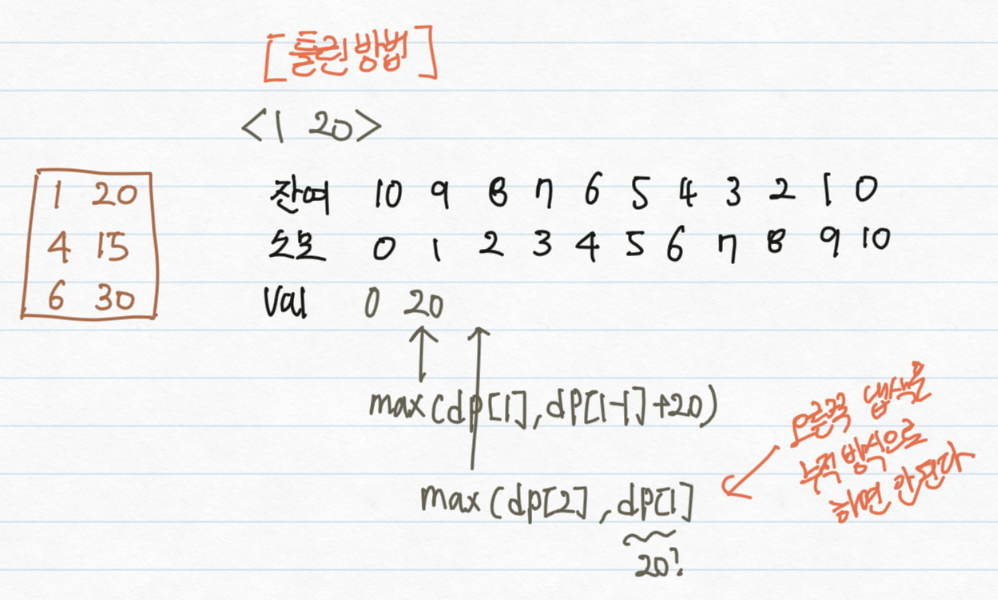 [틀린방법]
<1 20>
1 20
4 15
6 30
잔여 10 9 8 7 6 5 4 3 2 1 0
소모 0 1 2 3 4 5 6 7 8 9 10
Val 0 20
max(dp[1], dp[1-1]+20)
max(dp[2], dp[1]
20?
오른쪽 냅색을
누적 방식으로
하면 안된다